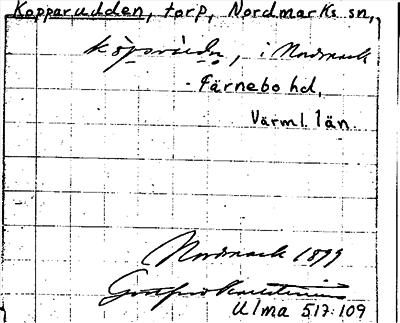 Kopparudden, torp, Nordmarks sn,
i Nordmark
Färnebo hd,
Värml. län.
Nordmark 1899
Ulma 517:109